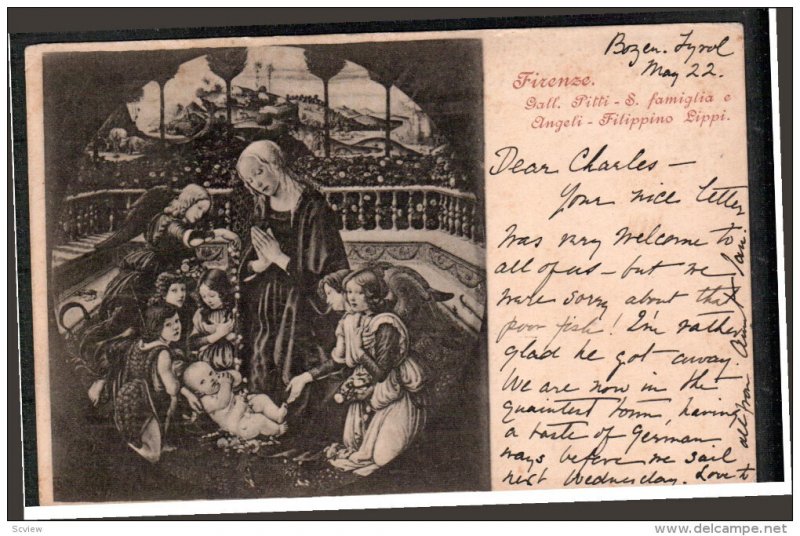 Bozen. Tyrol
May 22.
Firenze.
Gall. Pitti - S. famiglia e
Angeli - Filippino Lippi.
Dear Charles -
Your nice letter
was very welcome to
all of us - but we
were sorry about that
poor fish! I'm rather
glad he got away.
We are now in the
quaintest town, having
a taste of German
ways before we sail
next Wednesday. Love to
all from Aunt
Scview
www.delcampe.net